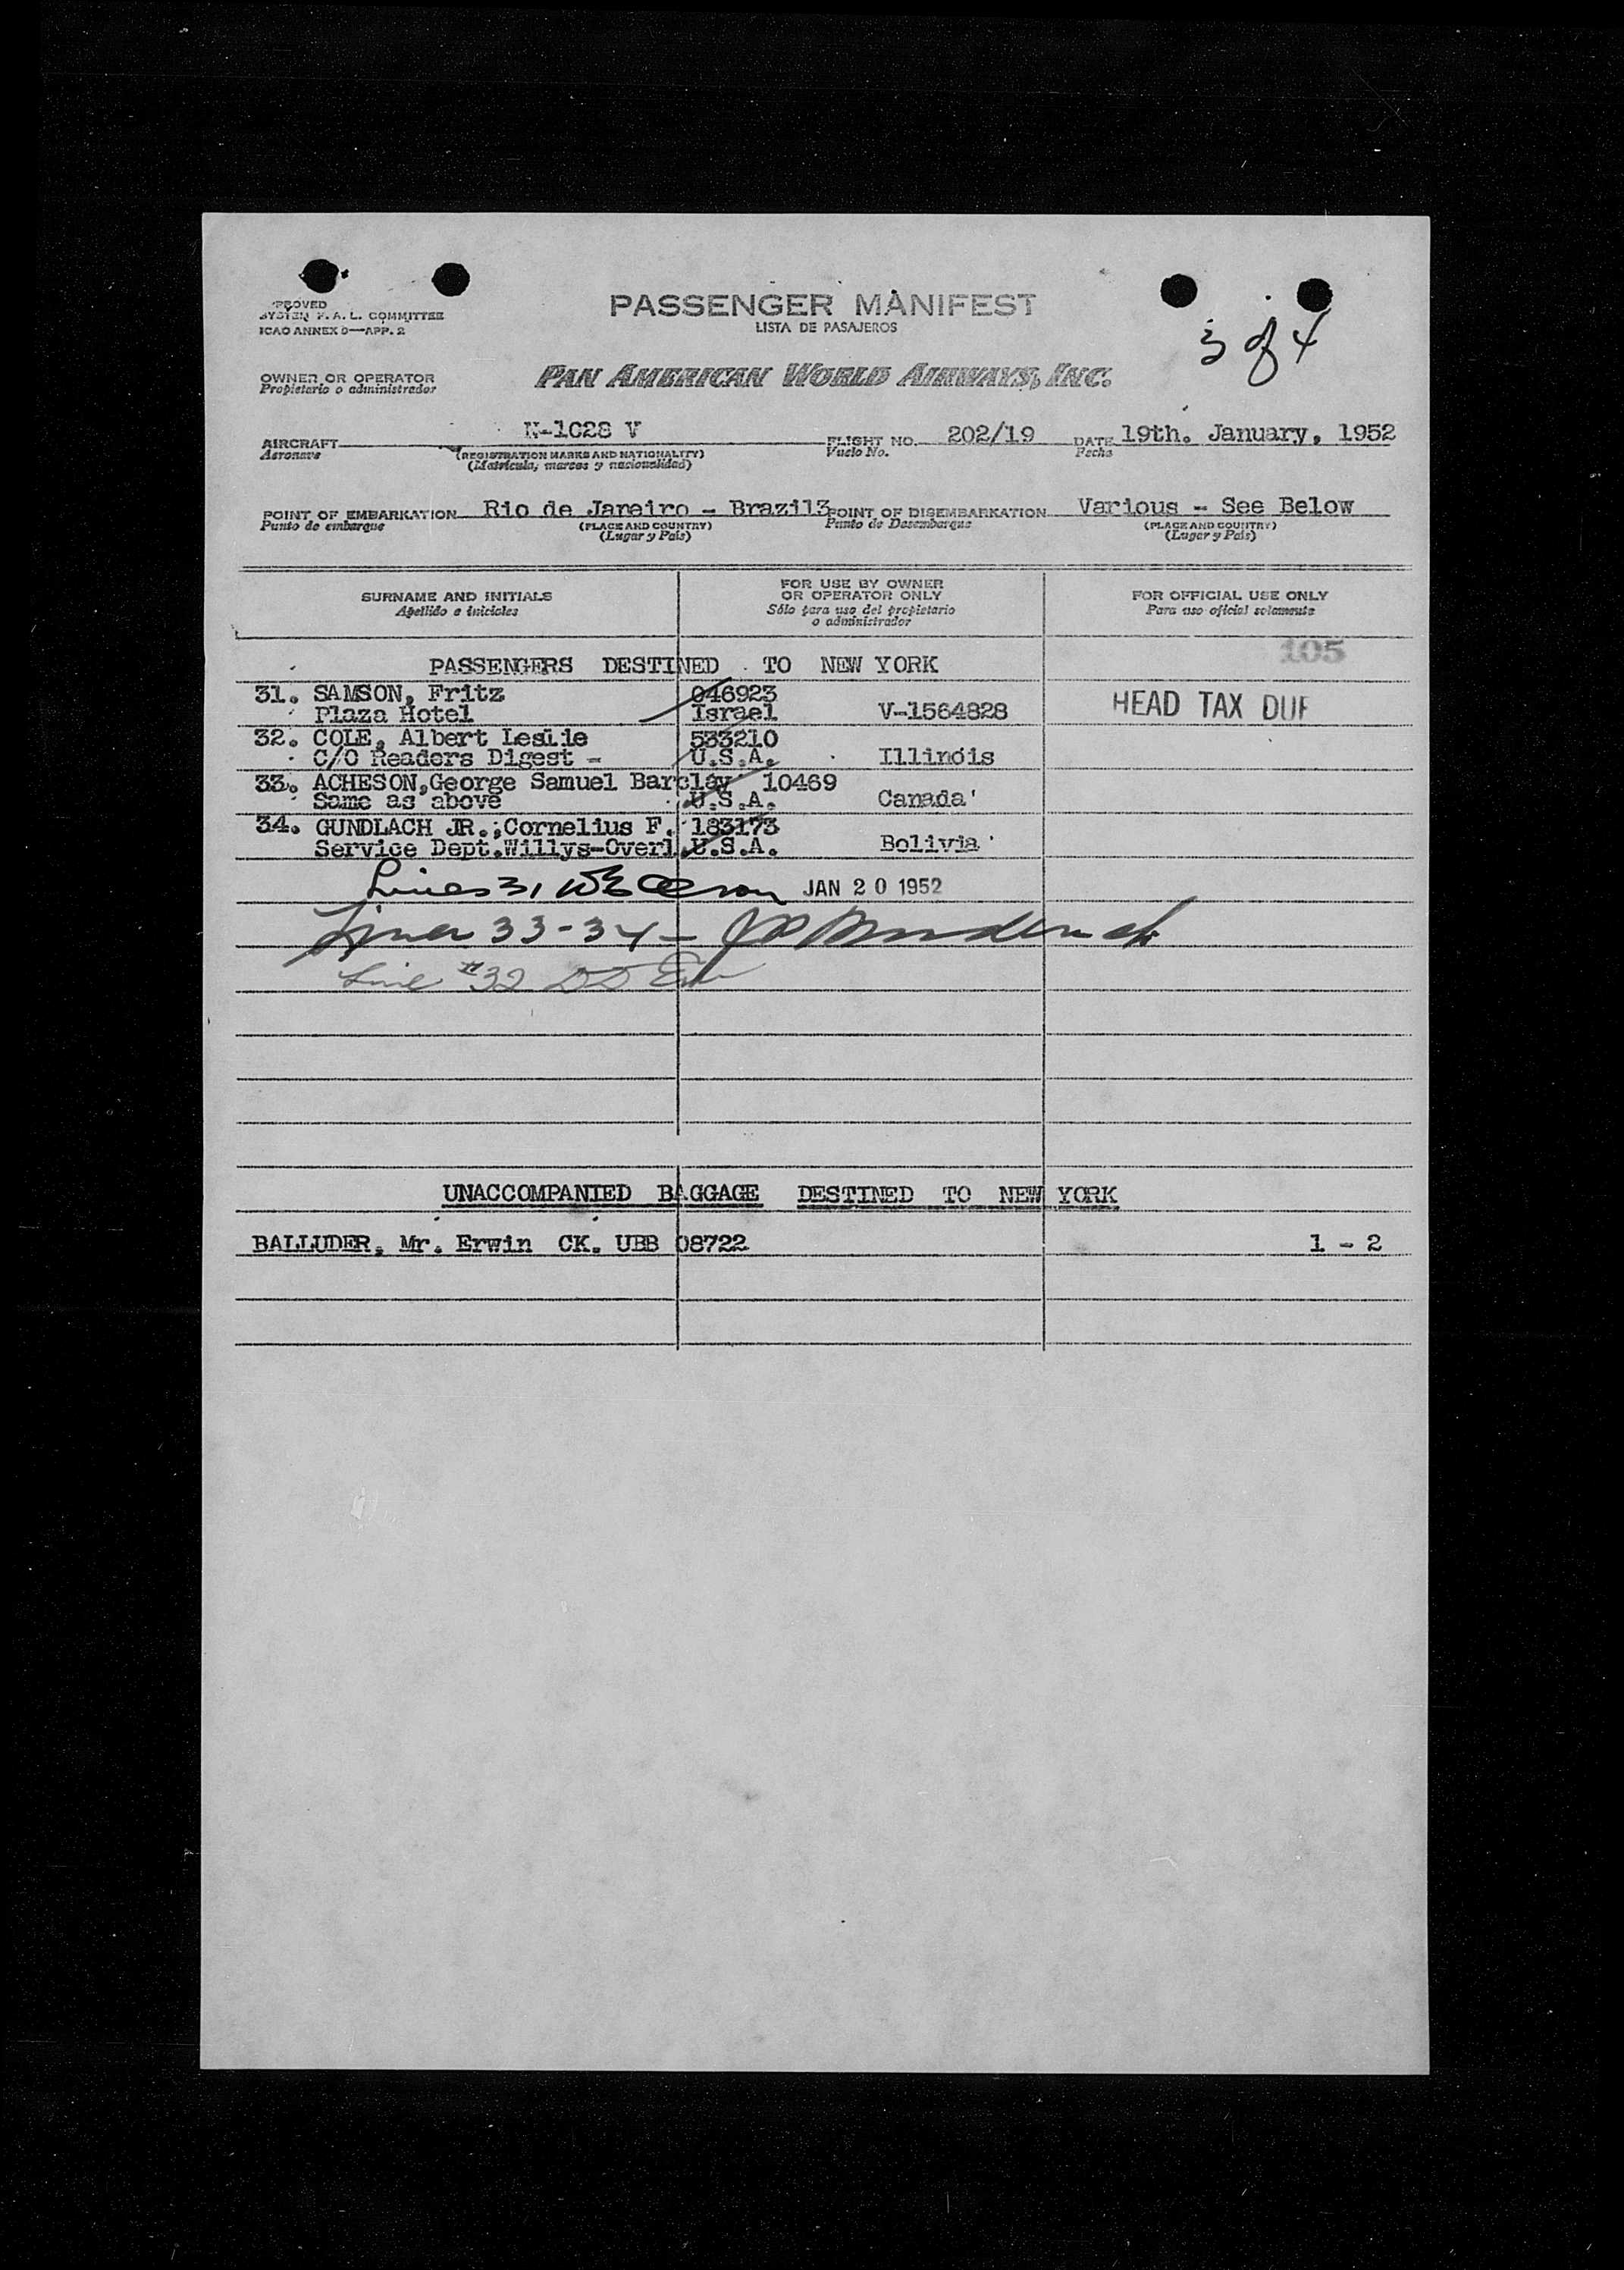 PROVED
SYSTEM F. A. L. COMMITTEE
ICAO ANNEX 9—APP. 2
PASSENGER MANIFEST
LISTA DE PASAJEROS
3 of 4
OWNER OR OPERATOR
Propietario o administrador
PAN AMERICAN WORLD AIRWAYS, INC.
AIRCRAFT N-1028 V FLIGHT NO. 202/19 DATE 19th. January, 1952
Aeronave (REGISTRATION MARKS AND NATIONALITY) Vuelo No. Fecha
(Matrícula, marcas y nacionalidad)
POINT OF EMBARKATION Rio de Janeiro - Brazil3 POINT OF DISEMBARKATION Various - See Below
Punto de embarque (PLACE AND COUNTRY) Punto de Desembarque (PLACE AND COUNTRY)
(Lugar y País) (Lugar y País)
SURNAME AND INITIALS
Apellido e iniciales
FOR USE BY OWNER
OR OPERATOR ONLY
Sólo para uso del propietario
o administrador
FOR OFFICIAL USE ONLY
Para uso oficial solamente
105
PASSENGERS DESTINED TO NEW YORK
31. SAMSON, Fritz 046923
Plaza Hotel Israel V-1564828 HEAD TAX DUE
32. COLE, Albert Leslie 533210
C/O Readers Digest - U.S.A. Illinois
33. ACHESON,George Samuel Barclay 10469
Same as above U.S.A. Canada
34. GUNDLACH JR.;Cornelius F. 183173
Service Dept.Willys-Overl U.S.A. Bolivia
Lines 31 JAN 20 1952
Lines 33-34 -
Line #32
UNACCOMPANIED BAGGAGE DESTINED TO NEW YORK
BALLUDER, Mr. Erwin CK. UBB 08722 1 - 2